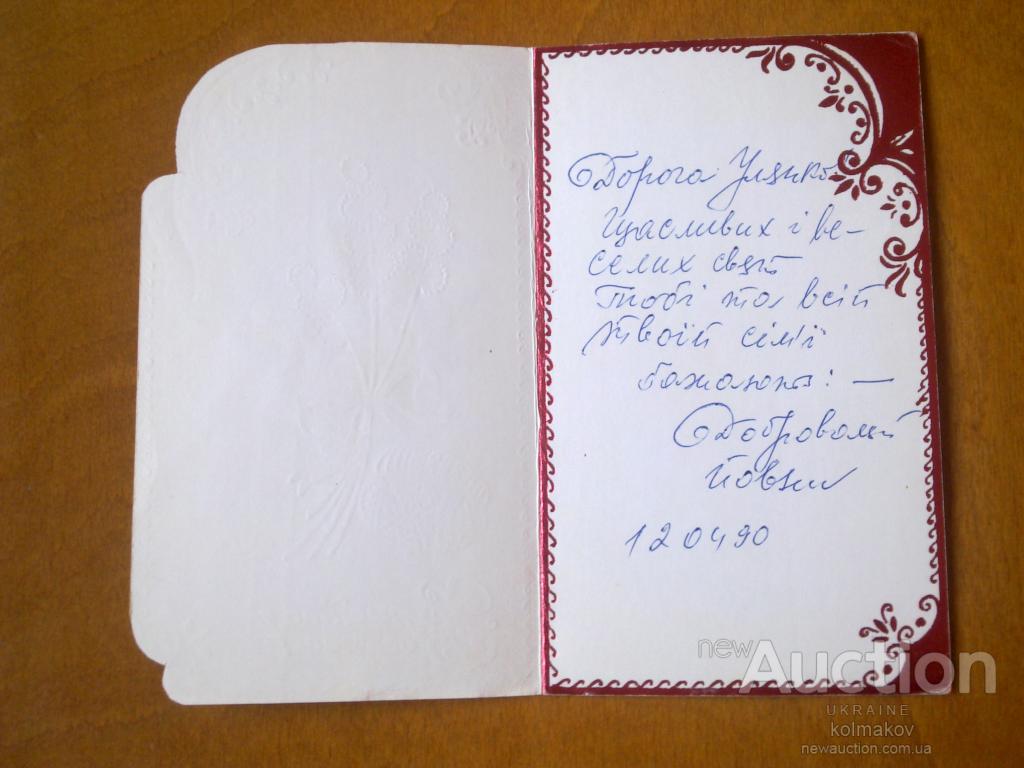 Дорога Улянко
Щасливих і ве-
селих свят
Тобі та всій
твоїй сім'ї
бажають: —
120490
new Auction
UKRAINE
kolmakov
newauction.com.ua